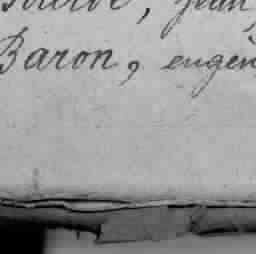 jean
Baron, eugen